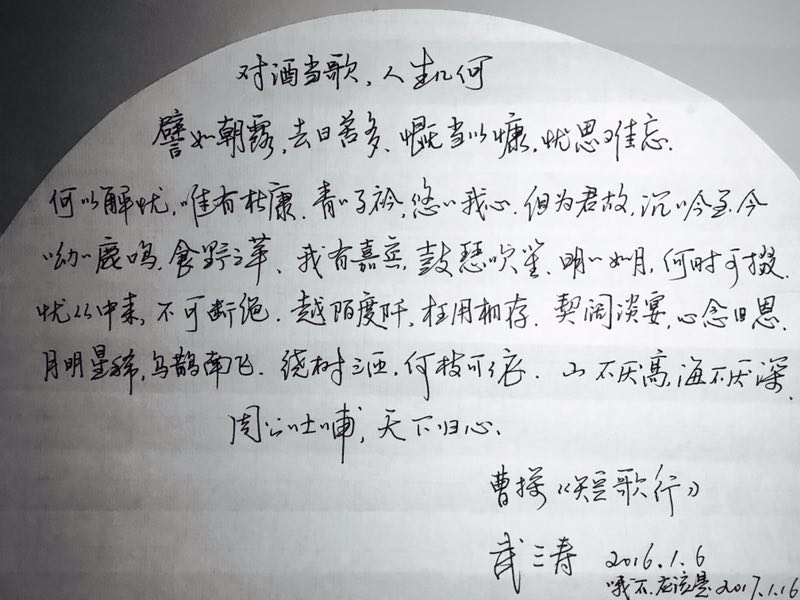 对酒当歌，人生几何
譬如朝露，去日苦多、慨当以慷，忧思难忘．
何以解忧，唯有杜康．青〃子衿，悠〃我心．但为君故，沉吟至今
呦〃鹿鸣，食野之苹、我有嘉宾，鼓瑟吹笙．明〃如月，何时可掇．
忧从中来，不可断绝．越陌度阡，枉用相存．契阔谈宴，心念旧恩．
月明星稀，乌鹊南飞．绕树三匝，何枝可依．山不厌高，海不厌深．
周公吐哺，天下归心．
曹操《短歌行》
武三寿 2016.1.6
哦不．应该是2017.1.16